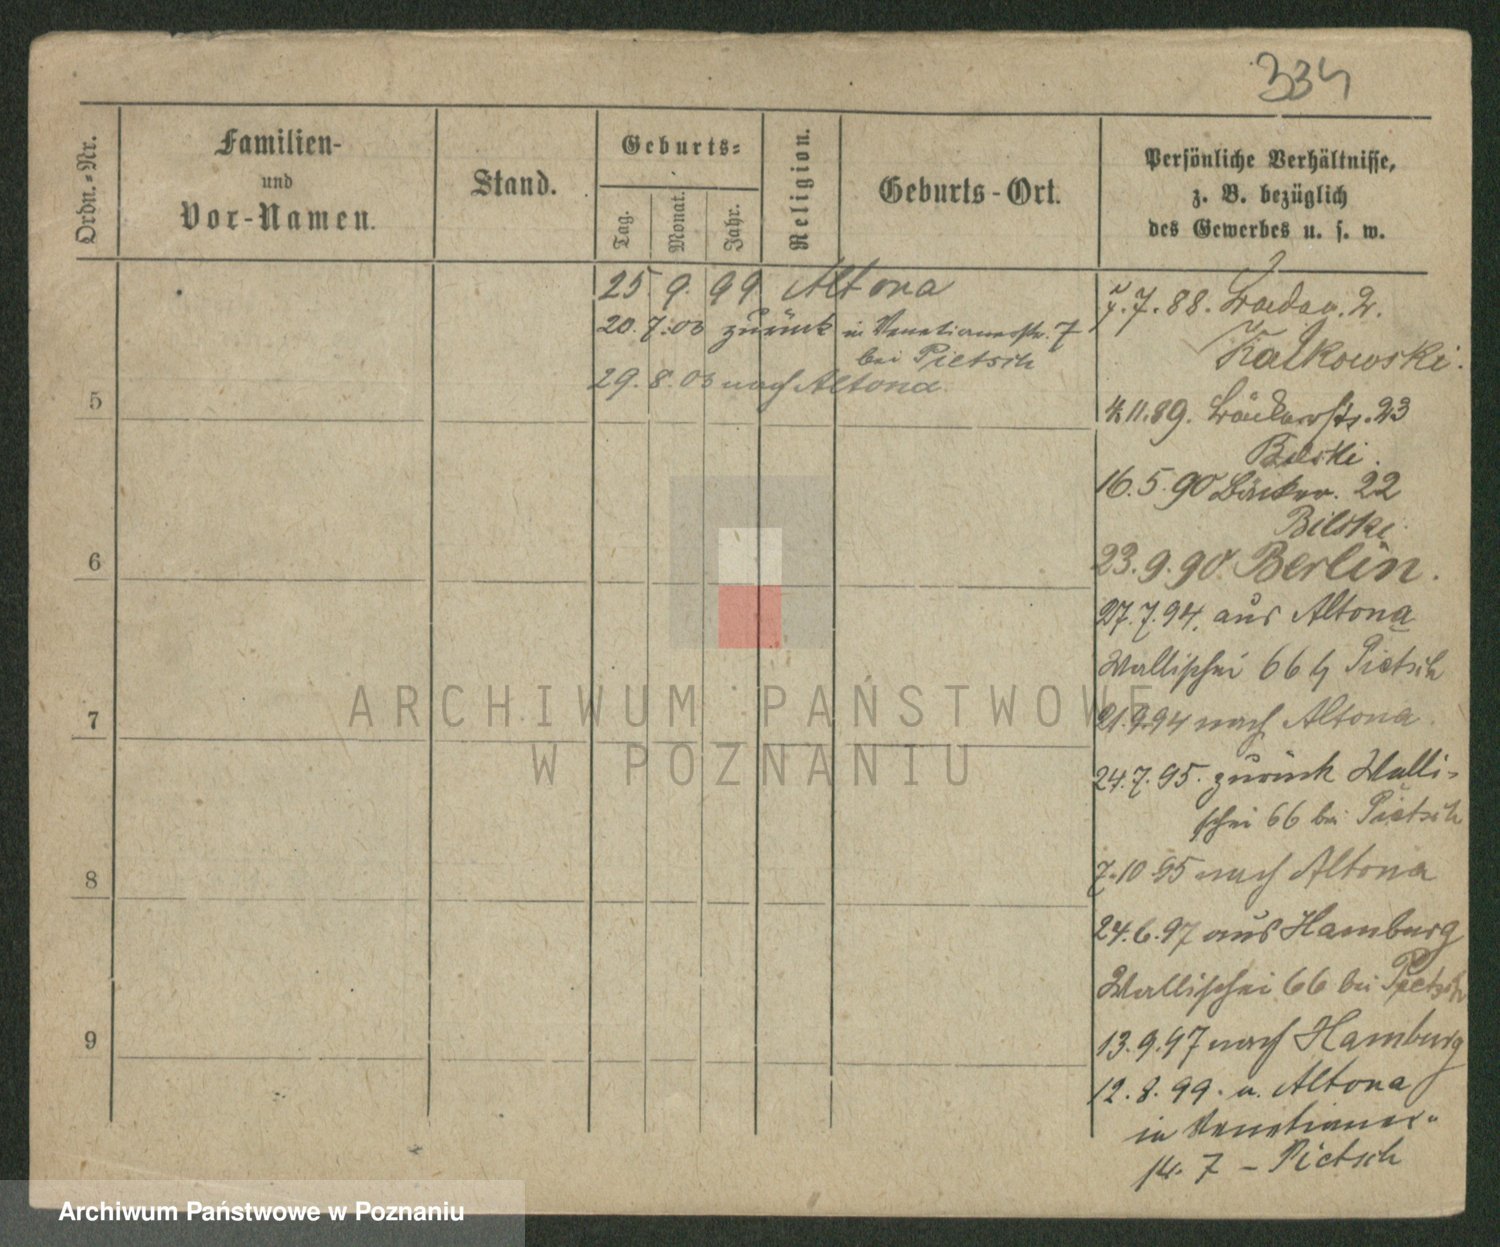 334
Ordn.-Nr.
Familien-
und
Vor-Namen.
Stand.
Geburts-
Tag.
Monat.
Jahr.
Religion.
Geburts-Ort.
Persönliche Verhältnisse,
z. B. bezüglich
des Gewerbes u. s. w.
25. 9. 99 Altona
20. 7. 03 zurück in Venetianerstr. 7
bei Pietsch
29. 8. 03 nach Altona
5
6
7
8
9
7. 88. 2.
Kalkowski.
11. 89. 23
Bilski.
16. 5. 90 Bäcker. 22
Bilski
23. 9. 90 Berlin.
27. 7. 94. aus Altona
Wallischei 66 Pietsch
21. 9. 94 nach Altona.
24. 7. 95. zurück Walli-
schei 66 bei Pietsch
7. 10. 95 nach Altona
24. 6. 97 aus Hamburg
Wallischei 66 bei Pietsch
13. 9. 97 nach Hamburg
12. 8. 99. a. Altona
in Venetianer-
str. 7 – Pietsch
ARCHIWUM PAŃSTWOWE
W POZNANIU
Archiwum Państwowe w Poznaniu